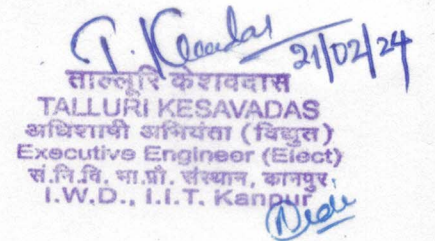 T. Kesavadas
21/02/24
ताल्लूरि केशवदास
TALLURI KESAVADAS
अधिशाषी अभियंता (विद्युत)
Executive Engineer (Elect)
सं.नि.वि. भा.प्रौ. संस्थान, कानपुर
I.W.D., I.I.T. Kanpur